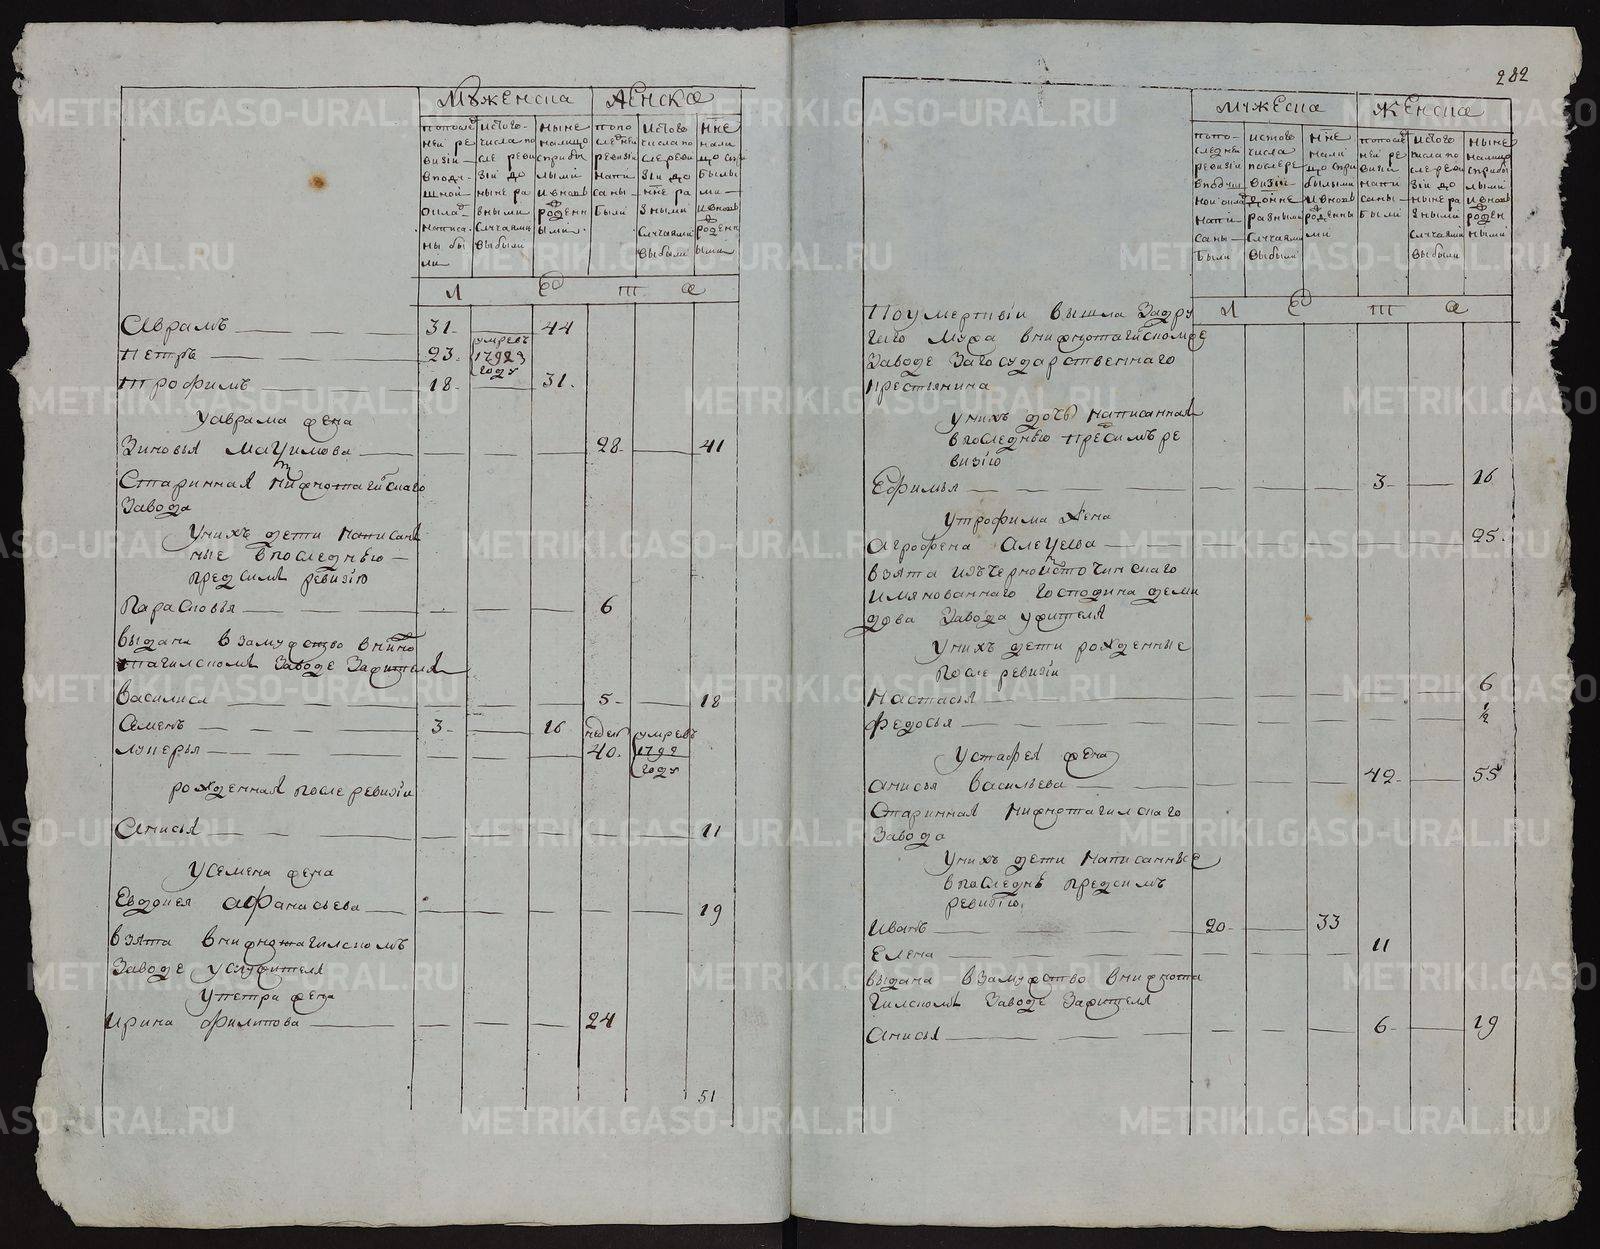 282
Мꙋженска Женска
попослед
ней ре
визіи
вподу
шной
оклад
написа
ны бы
ли
истого
числа по
сле реви
зіи до
ныне ра
зными
случаями
выбыли
ныне
налицо
сприбы
лыми
и вновь
рожденн
ыми
попо
следней
ревизіи
напи
саны
были
истого
числа по
сле реви
зіи до
нне ра
зными
случаями
выбыли
нне
нали
цо спри
былы
ми
и вновь
рожденн
ыми
Л Е т а
Аврамъ 31 44
Петръ 23 умрѣ въ 1792 году
Трофимъ 18 31
У Аврама жена
Зиновья Маѯимова 28 41
Старинная нижнотагилскаго
Завода
У нихъ дети написан
ные в последнюю
пред симъ ревизію
Парасковья 6
выдана в замужство в нижно
тагилскомъ Заводе За жителя
Василиса 5 18
Семенъ 3 16
Лукерья недел 40 умре въ 1792 году
рожденная после ревизіи
Анисья 11
У Семена жена
Евдокея Афанасьева 19
взята в нижнотагилскомъ
Заводе у жителя
У петра жена
Ирина Филипова 24
51
Мужеска Женска
попо
следней
ревизіи
в подуш
ной оклад
напи
саны
были
истого
числа
после ре
визіи
до нне
разными
случаями
выбыли
нне
нали
цо спри
былыми
и вновь
рожденны
ми
попослед
ней ре
визіи
напи
саны
были
истого
числа по
сле реви
зіи до
ныне ра
зными
случаями
выбыли
ныне
налицо
сприбы
лыми
и вновь
рожден
ными
Л Е т а
По умертвіи вышла За дру
гаго Мужа в нижнотагилскомже
Заводе За государственнаго
крестьянина
У нихъ дочь написанная
в последнюю пред симъ ре
визію
Ефимья 3 16
У трофима жена
Агрофена Алеѯеева 25
взята изъ черноисточинскаго
имянованнаго господина деми
дова Завода у жителя
У нихъ дети рожденные
после ревизіи
Настасья 6
Федосья ½
У стафея жена
Анисья Васильева 42 55
Старинная нижнотагилскаго
Завода
У нихъ дети написанные
в последнею пред симъ
ревизію
Иванъ 20 33
Елена 11
выдана в замужство в нижнота
гилскомъ Заводе За жителя
Анисья 6 19
METRIKI.GASO-URAL.RU